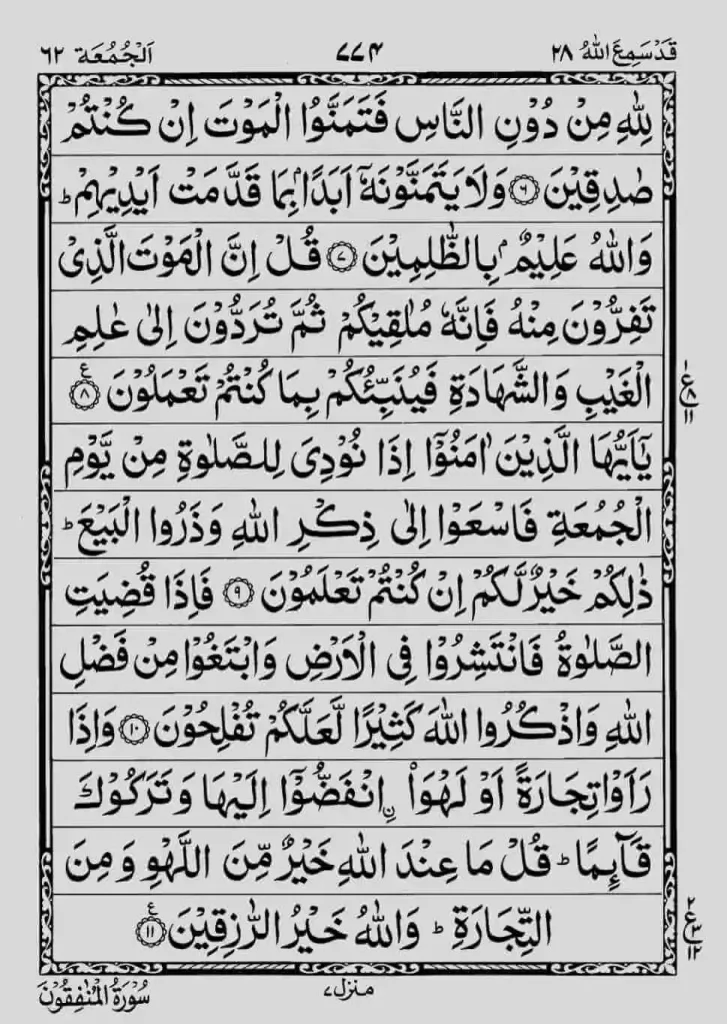 قَدْ سَمِعَ اللّٰهُ ٢٨ ٧٧۴ اَلْجُمُعَة ٦٢
لِلّٰهِ مِنْ دُوْنِ النَّاسِ فَتَمَنَّوُا الْمَوْتَ اِنْ كُنْتُمْ
صٰدِقِيْنَ ۝٦ وَلَا يَتَمَنَّوْنَهٗۤ اَبَدًۢا بِمَا قَدَّمَتْ اَيْدِيْهِمْ ؕ
وَاللّٰهُ عَلِيْمٌۢ بِالظّٰلِمِيْنَ ۝٧ قُلْ اِنَّ الْمَوْتَ الَّذِىْ
تَفِرُّوْنَ مِنْهُ فَاِنَّهٗ مُلٰقِيْكُمْ ثُمَّ تُرَدُّوْنَ اِلٰى عٰلِمِ
الْغَيْبِ وَالشَّهَادَةِ فَيُنَبِّئُكُمْ بِمَا كُنْتُمْ تَعْمَلُوْنَ ۝٨ ع
ع ١ ٨ ١١
يٰۤاَيُّهَا الَّذِيْنَ اٰمَنُوْۤا اِذَا نُوْدِىَ لِلصَّلٰوةِ مِنْ يَّوْمِ
الْجُمُعَةِ فَاسْعَوْا اِلٰى ذِكْرِ اللّٰهِ وَذَرُوا الْبَيْعَ ؕ
ذٰلِكُمْ خَيْرٌ لَّكُمْ اِنْ كُنْتُمْ تَعْلَمُوْنَ ۝٩ فَاِذَا قُضِيَتِ
الصَّلٰوةُ فَانْتَشِرُوْا فِى الْاَرْضِ وَابْتَغُوْا مِنْ فَضْلِ
اللّٰهِ وَاذْكُرُوا اللّٰهَ كَثِيْرًا لَّعَلَّكُمْ تُفْلِحُوْنَ ۝١٠ وَاِذَا
رَاَوْا تِجَارَةً اَوْ لَهْوَاۨ انْفَضُّوْۤا اِلَيْهَا وَتَرَكُوْكَ
قَآئِمًا ؕ قُلْ مَا عِنْدَ اللّٰهِ خَيْرٌ مِّنَ اللَّهْوِ وَمِنَ
التِّجَارَةِ ؕ وَاللّٰهُ خَيْرُ الرّٰزِقِيْنَ ۝١١ ع
ع ٢ ٣ ١٢
منزل ٧
سُوْرَةُ الْمُنٰفِقُوْنَ